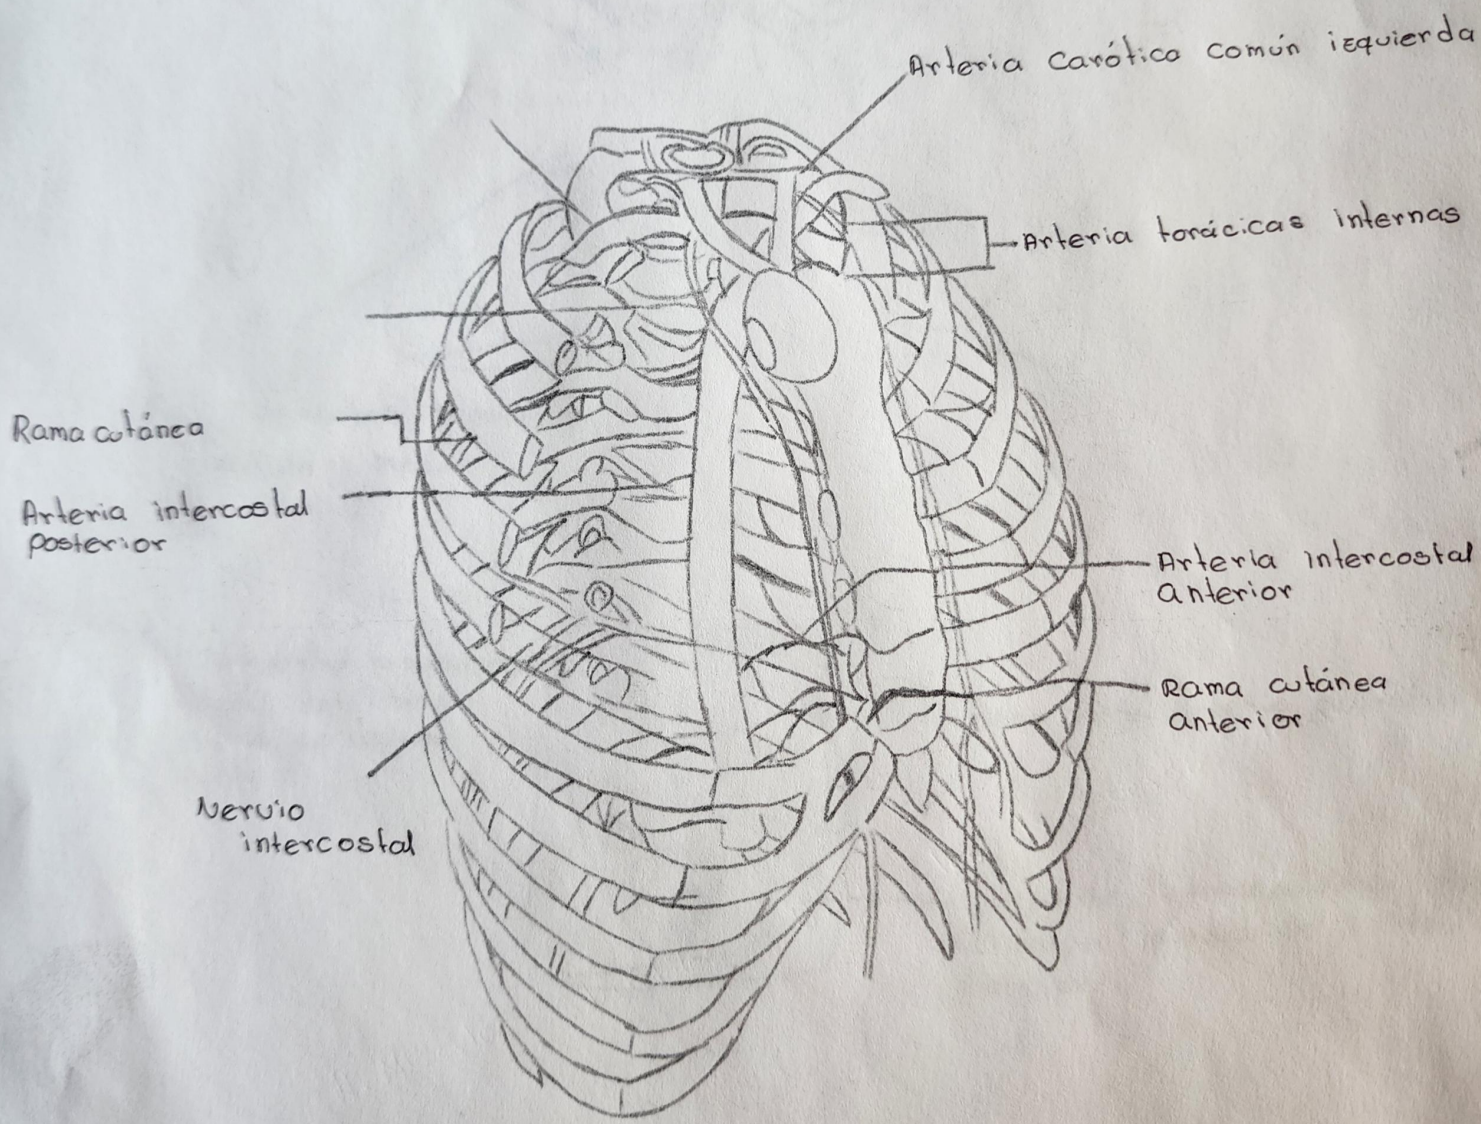 Arteria Carótica común izquierda
Arteria torácicas internas
Rama cutánea
Arteria intercostal
Posterior
Arteria intercostal
anterior
Rama cutánea
anterior
Nervio
intercostal